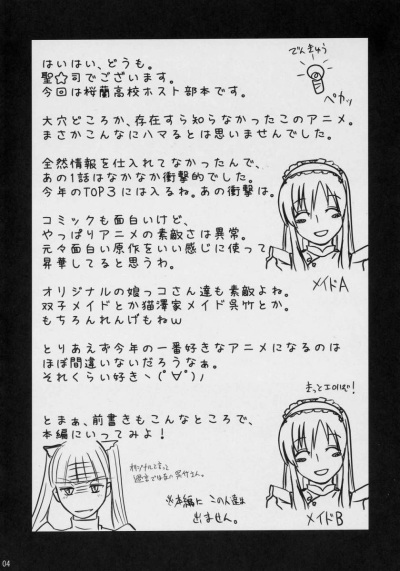 はいはい、どうも。
聖☆司でございます。
今回は桜蘭高校ホスト部本です。
大穴どころか、存在すら知らなかったこのアニメ。
まさかこんなにハマるとは思いませんでした。
全然情報を仕入れてなかったんで、
あの1話はなかなか衝撃的でした。
今年のTOP3には入るね。あの衝撃は。
コミックも面白いけど、
やっぱりアニメの素敵さは異常。
元々面白い原作をいい感じに使って
昇華してると思うわ。
オリジナルの娘っコさん達も素敵よね。
双子メイドとか猫澤家メイド呉竹とか。
もちろんれんげもねw
とりあえず今年の一番好きなアニメになるのは
ほぼ間違いないだろうなぁ。
それくらい好きヽ(ﾟ∀ﾟ)ﾉ
とまぁ、前書きもこんなところで、
本編にいってみよ！
でんきゅう
ペカッ
メイドA
メイドB
※本編に この人達は
出ません。
04